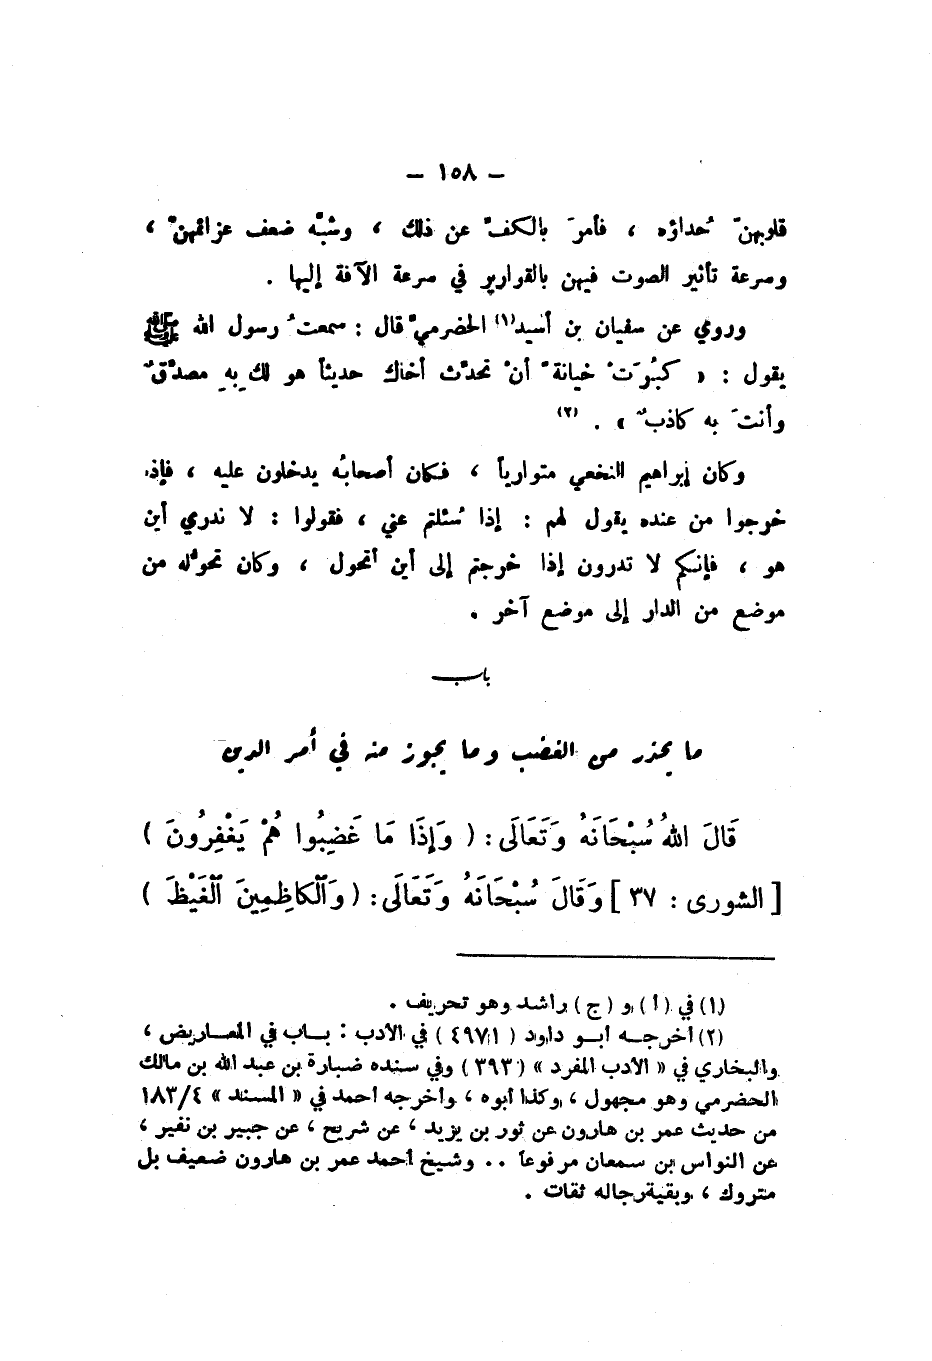 – ١٥٨ –
قلوبهنّ حُداؤه ، فأمرَ بالكفّ عن ذلك ، وشبَّه ضعف عزائمهنّ ،
وسرعة تأثير الصوت فيهن بالقوارير في سرعة الآفة إليها .
وروي عن سفيان بن أَسيد(١) الحضرميّ قال : سمعتُ رسول الله ﷺ
يقول : « كبُرَتْ خيانةً أنْ تحدِّث أخاك حديثاً هو لك بِهِ مصدِّقٌ
وأنتَ به كاذبٌ » . (٢)
وكان إبراهيم النخعي متوارياً ، فكان أصحابُه يدخلون عليه ، فإذا
خرجوا من عنده يقول لهم : إذا سُئلتم عني ، فقولوا : لا ندري أين
هو ، فإنكم لا تدرون إذا خرجتم إلى أين أتحول ، وكان تحوُّله من
موضع من الدار إلى موضع آخر .
باب
ما يحذر من الغضب وما يجوز منه في أمر الدين
قَالَ اللهُ سُبْحَانَهُ وَتَعَالَى : ( وَإِذَا مَا غَضِبُوا هُمْ يَغْفِرُونَ )
[ الشورى : ٣٧ ] وَقَالَ سُبْحَانَهُ وَتَعَالَى : ( وَالْكَاظِمِينَ الْغَيْظَ )
(١) في (أ) و (ج) راشد وهو تحريف .
(٢) أخرجه أبو داود ( ٤٩٧١ ) في الأدب : باب في المعاريض ،
والبخاري في « الأدب المفرد » ( ٣٩٣ ) وفي سنده ضبارة بن عبد الله بن مالك
الحضرمي وهو مجهول ، وكذا أبوه ، وأخرجه أحمد في « المسند » ١٨٣/٤
من حديث عمر بن هارون عن ثور بن يزيد ، عن شريح ، عن جبير بن نفير ،
عن النواس بن سمعان مرفوعاً .. وشيخ أحمد عمر بن هارون ضعيف بل
متروك ، وبقية رجاله ثقات .